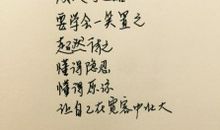 要学会一笑置之
超然待之
懂得隐忍
懂得原谅
让自己在宽容中壮大